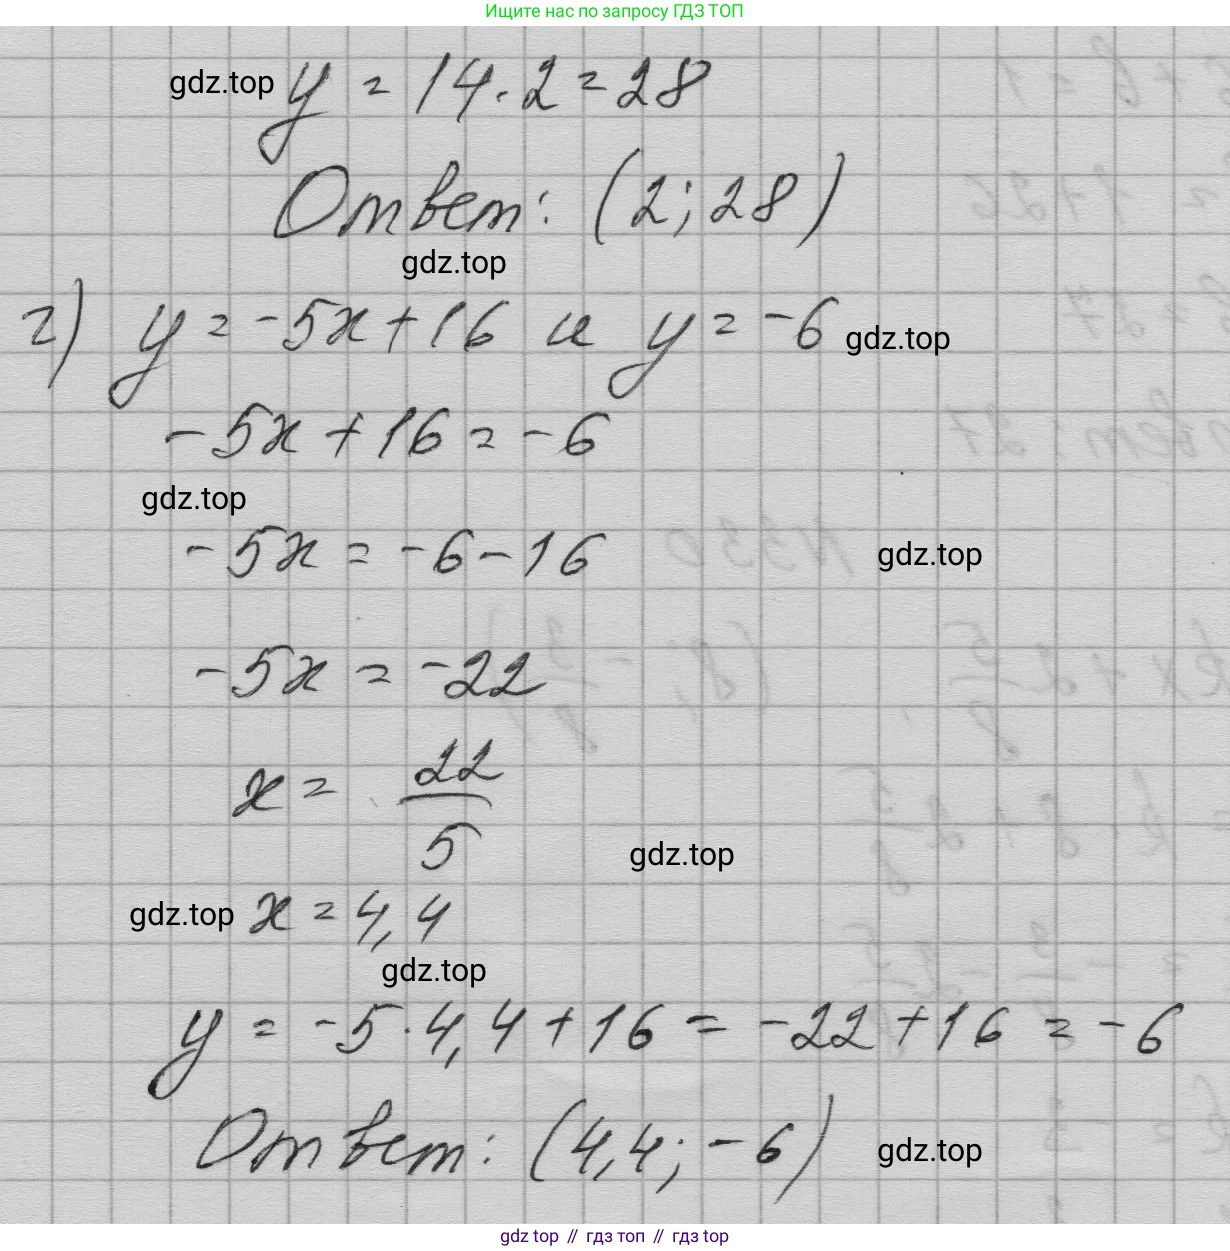 Ищите нас по запросу ГДЗ ТОП
gdz.top y = 14 · 2 = 28
Ответ: (2; 28)
gdz.top
г) y = -5x + 16 и y = -6 gdz.top
-5x + 16 = -6
gdz.top
-5x = -6 - 16 gdz.top
-5x = -22
x = 22/5
gdz.top
gdz.top x = 4,4
gdz.top
y = -5 · 4,4 + 16 = -22 + 16 = -6
Ответ: (4,4; -6) gdz.top
gdz top // гдз топ // gdz top